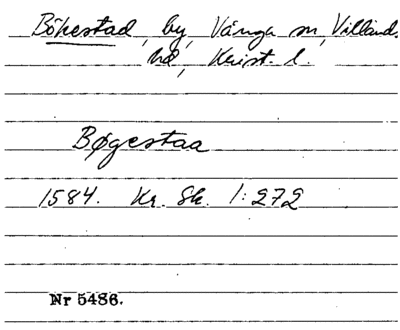 Bökestad, by, Vånga sn, Villands
hd, Krist. l.
Bøgestaa
1584. Kr. Sk. 1:272
Nr 5486.